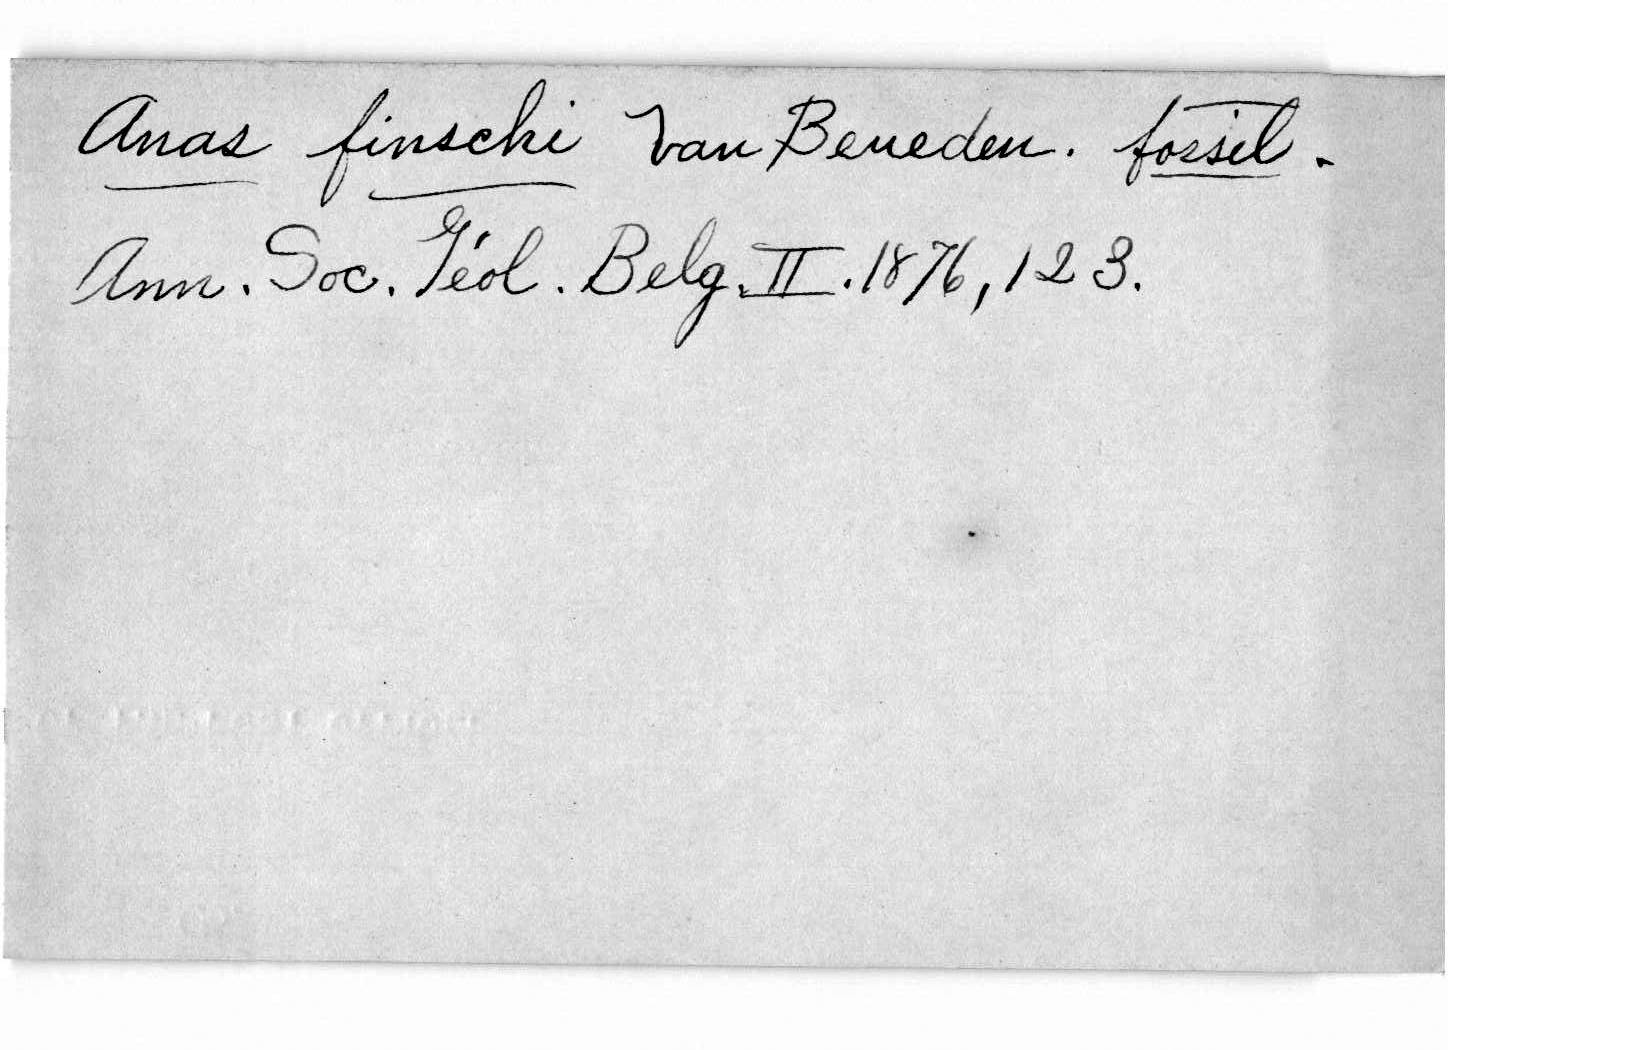 Anas finschi Van Beneden. fossil.
Ann. Soc. Géol. Belg. II. 1876, 123.